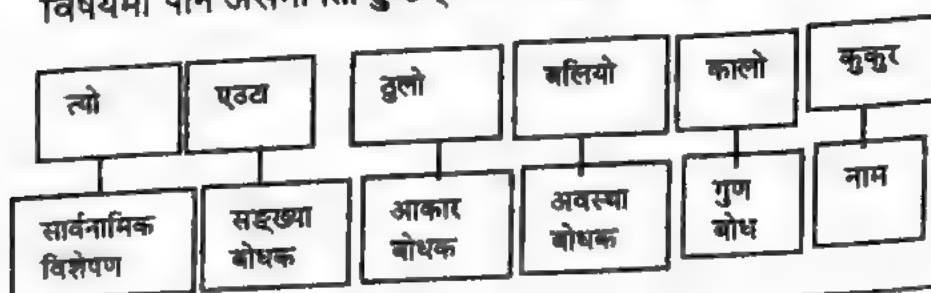 विषयमा पनि
त्यो एउटा ठुलो बलियो कालो कुकुर
सार्वनामिक विशेषण
सङ्ख्या बोधक
आकार बोधक
अवस्था बोधक
गुण बोध
नाम